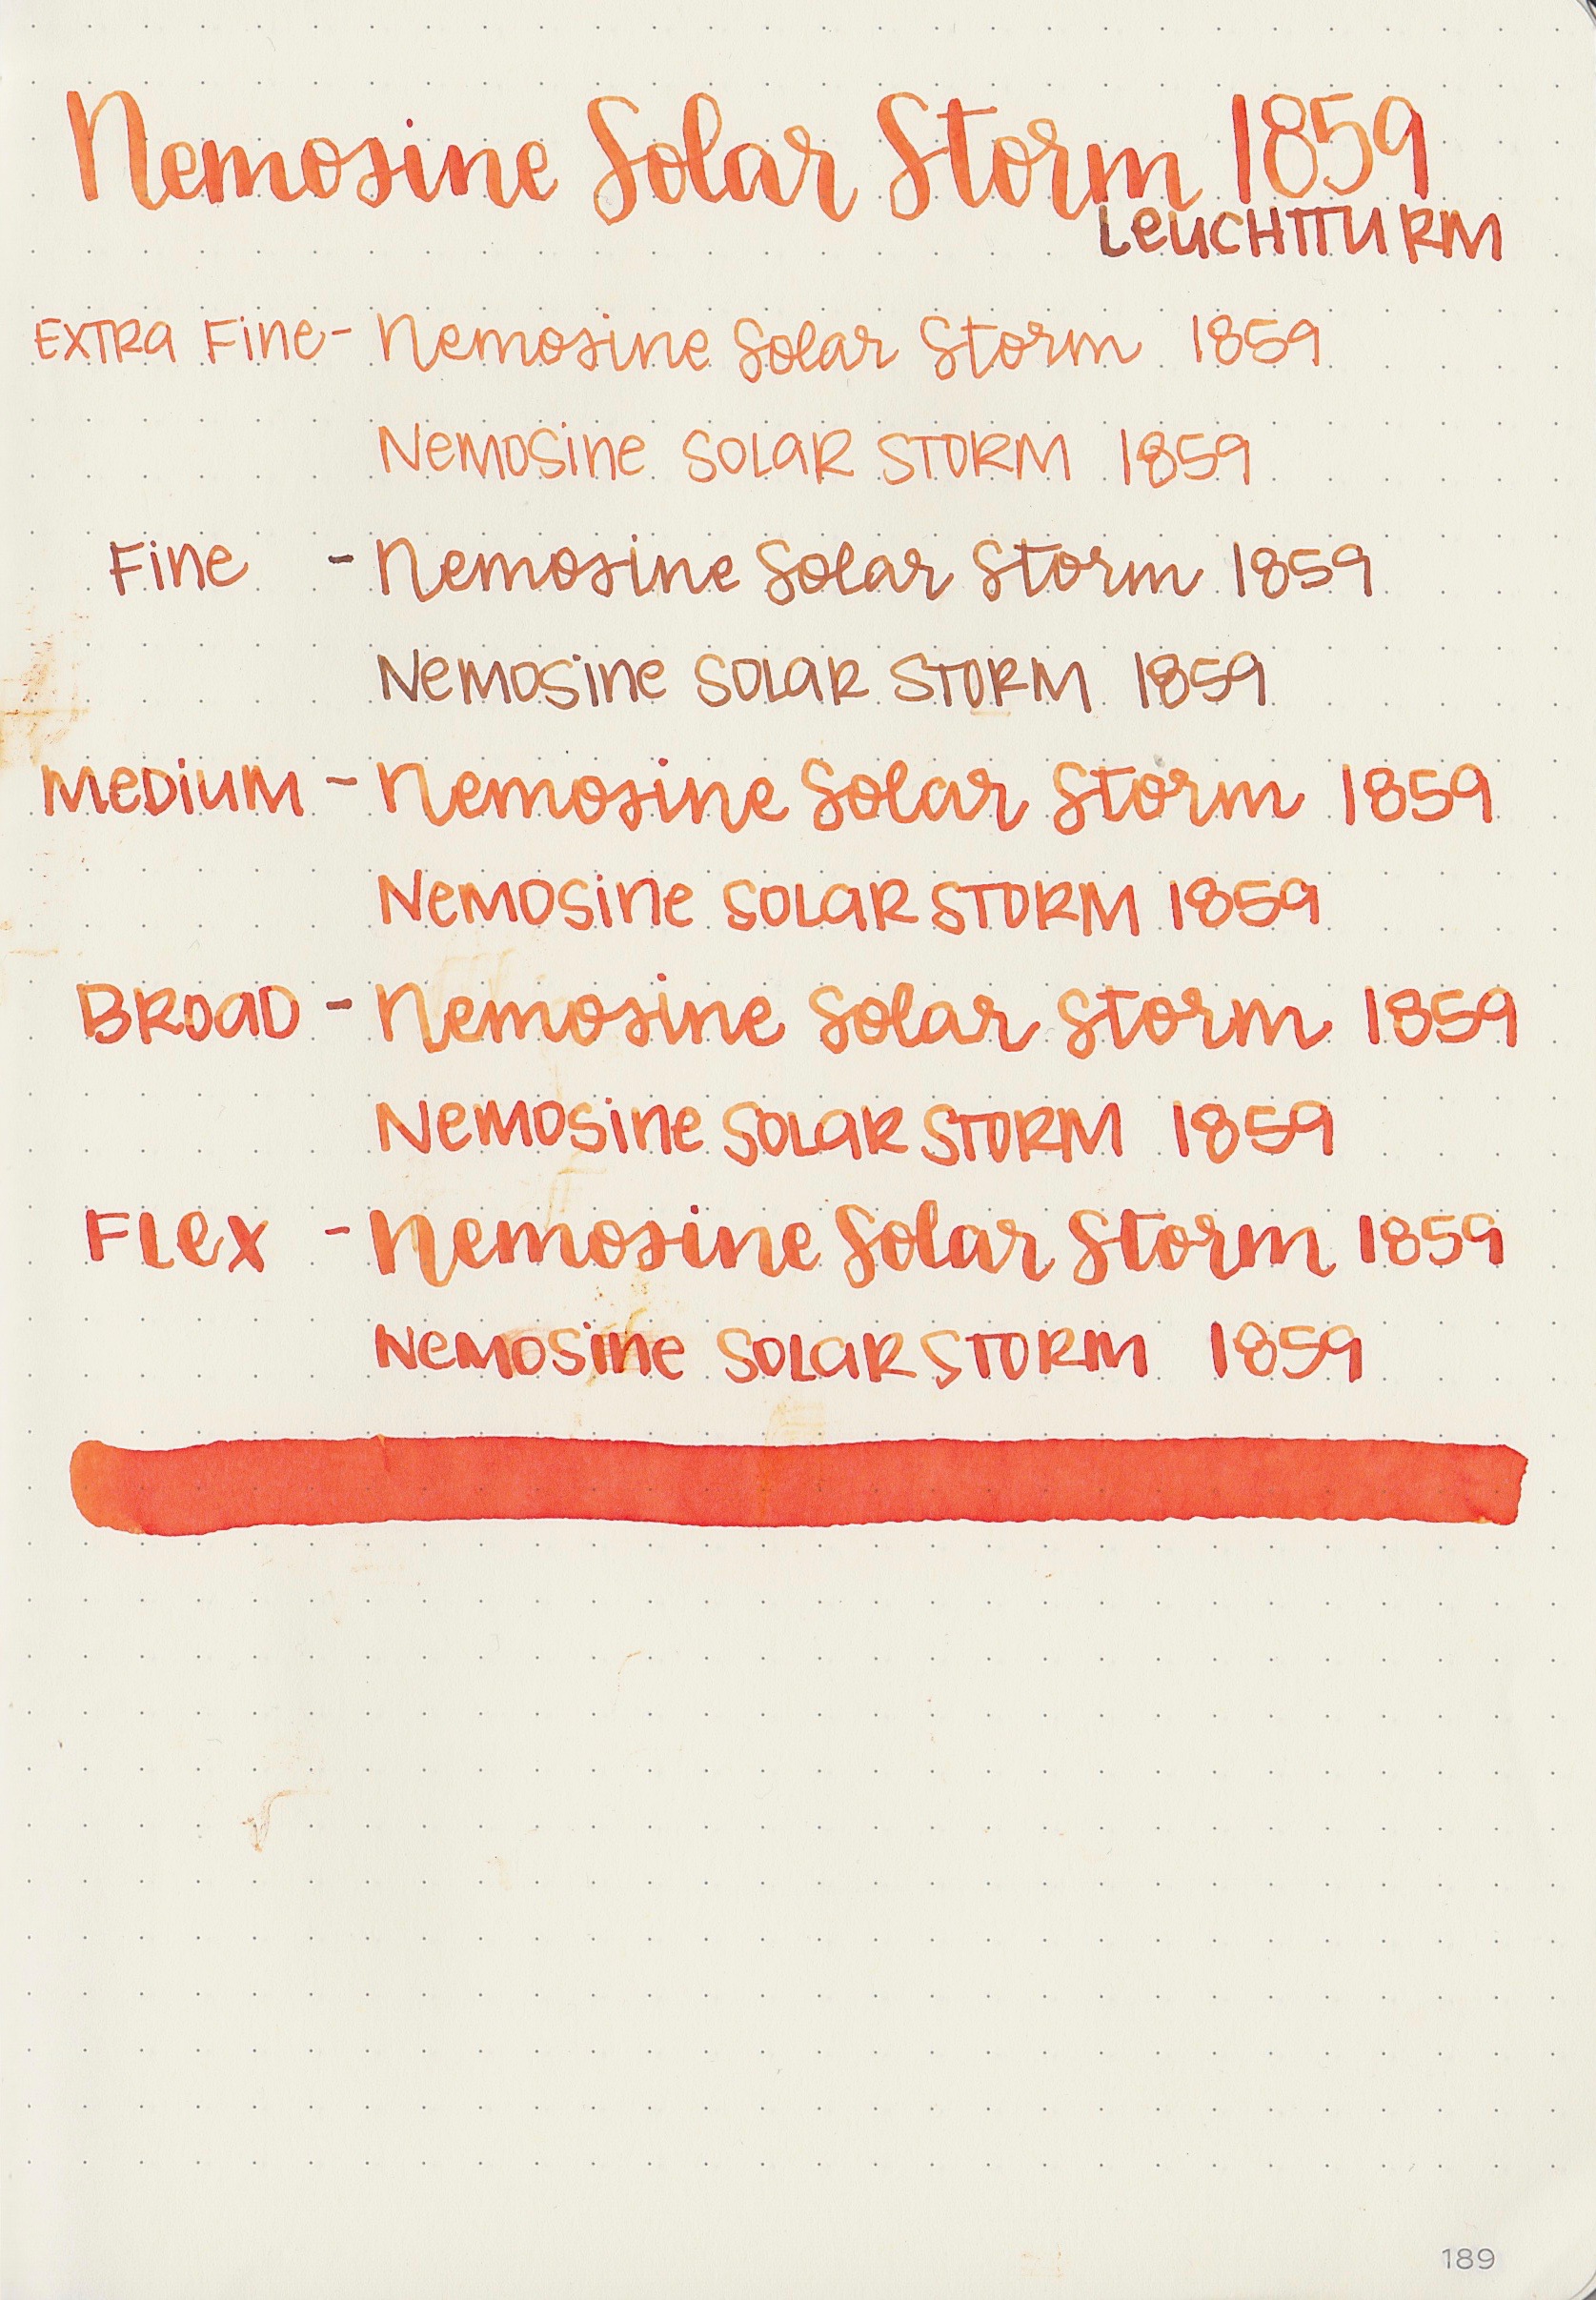 Nemosine Solar Storm 1859
LeUCHTTURM
EXTRa Fine- Nemosine Solar Storm 1859
NeMOSine SOLaR STORM 1859
Fine - Nemosine Solar Storm 1859
NeMOSine SOLaR STORM 1859
MeDiUM - Nemosine Solar Storm 1859
NeMOSine SOLaR STORM 1859
BROaD - Nemosine Solar Storm 1859
NeMOSine SOLaR STORM 1859
FLex - Nemosine Solar Storm 1859
NeMOSine SOLaR STORM 1859
189